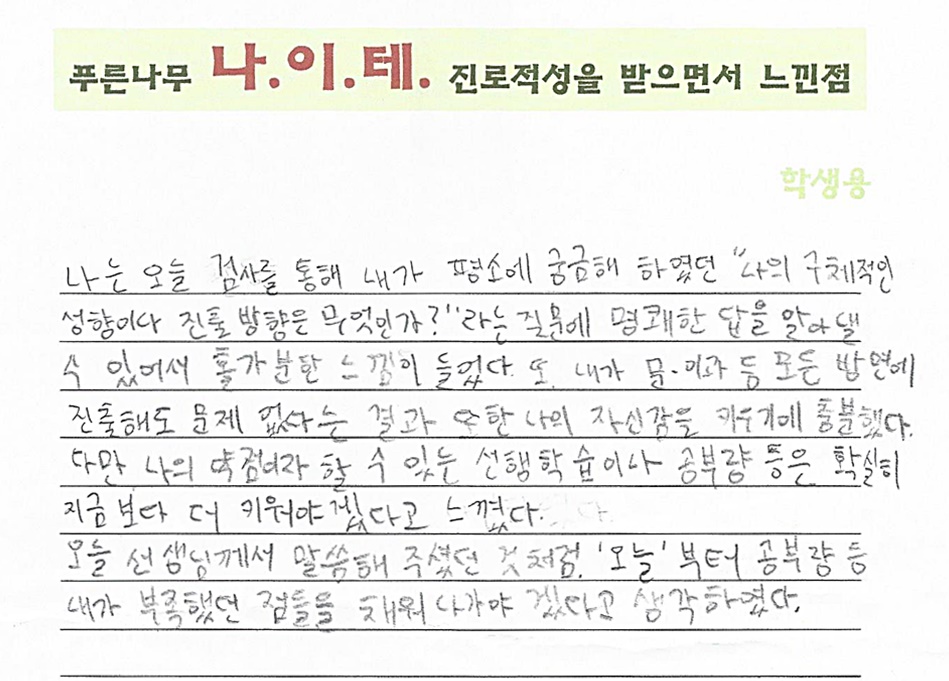 푸른나무 나.이.테. 진로적성을 받으면서 느낀점
학생용
나는 오늘 검사를 통해 내가 평소에 궁금해 하였던 "나의 구체적인
성향이나 진출 방향은 무엇인가?"라는 질문에 명쾌한 답을 알아 낼
수 있어서 홀가분한 느낌이 들었다. 또 내가 문·이과 등 모든 방면에
진출해도 문제 없다는 결과 또한 나의 자신감을 키우기에 충분했다.
다만 나의 약점이라 할 수 있는 선행학습이나 공부량 등은 확실히
지금보다 더 키워야겠다고 느꼈다.
오늘 선생님께서 말씀해 주셨던 것처럼, '오늘'부터 공부량 등
내가 부족했던 점들을 채워 나가야 겠다고 생각하였다.